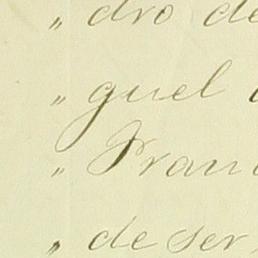 „ dro de
„ guel
„ Fran
„ deser